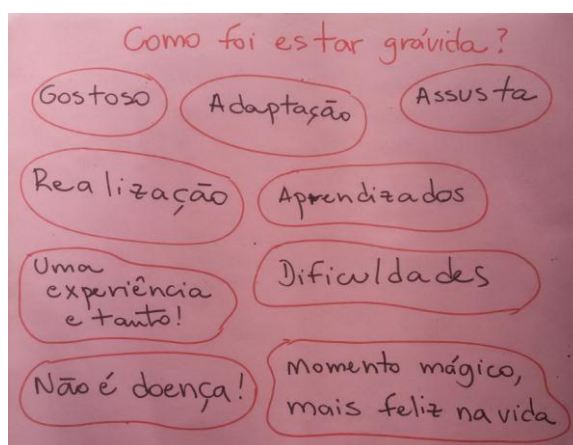 Como foi estar grávida?
Gostoso
Adaptação
Assusta
Realização
Aprendizados
Uma
experiência
e tanto!
Dificuldades
Não é doença!
Momento mágico,
mais feliz na vida